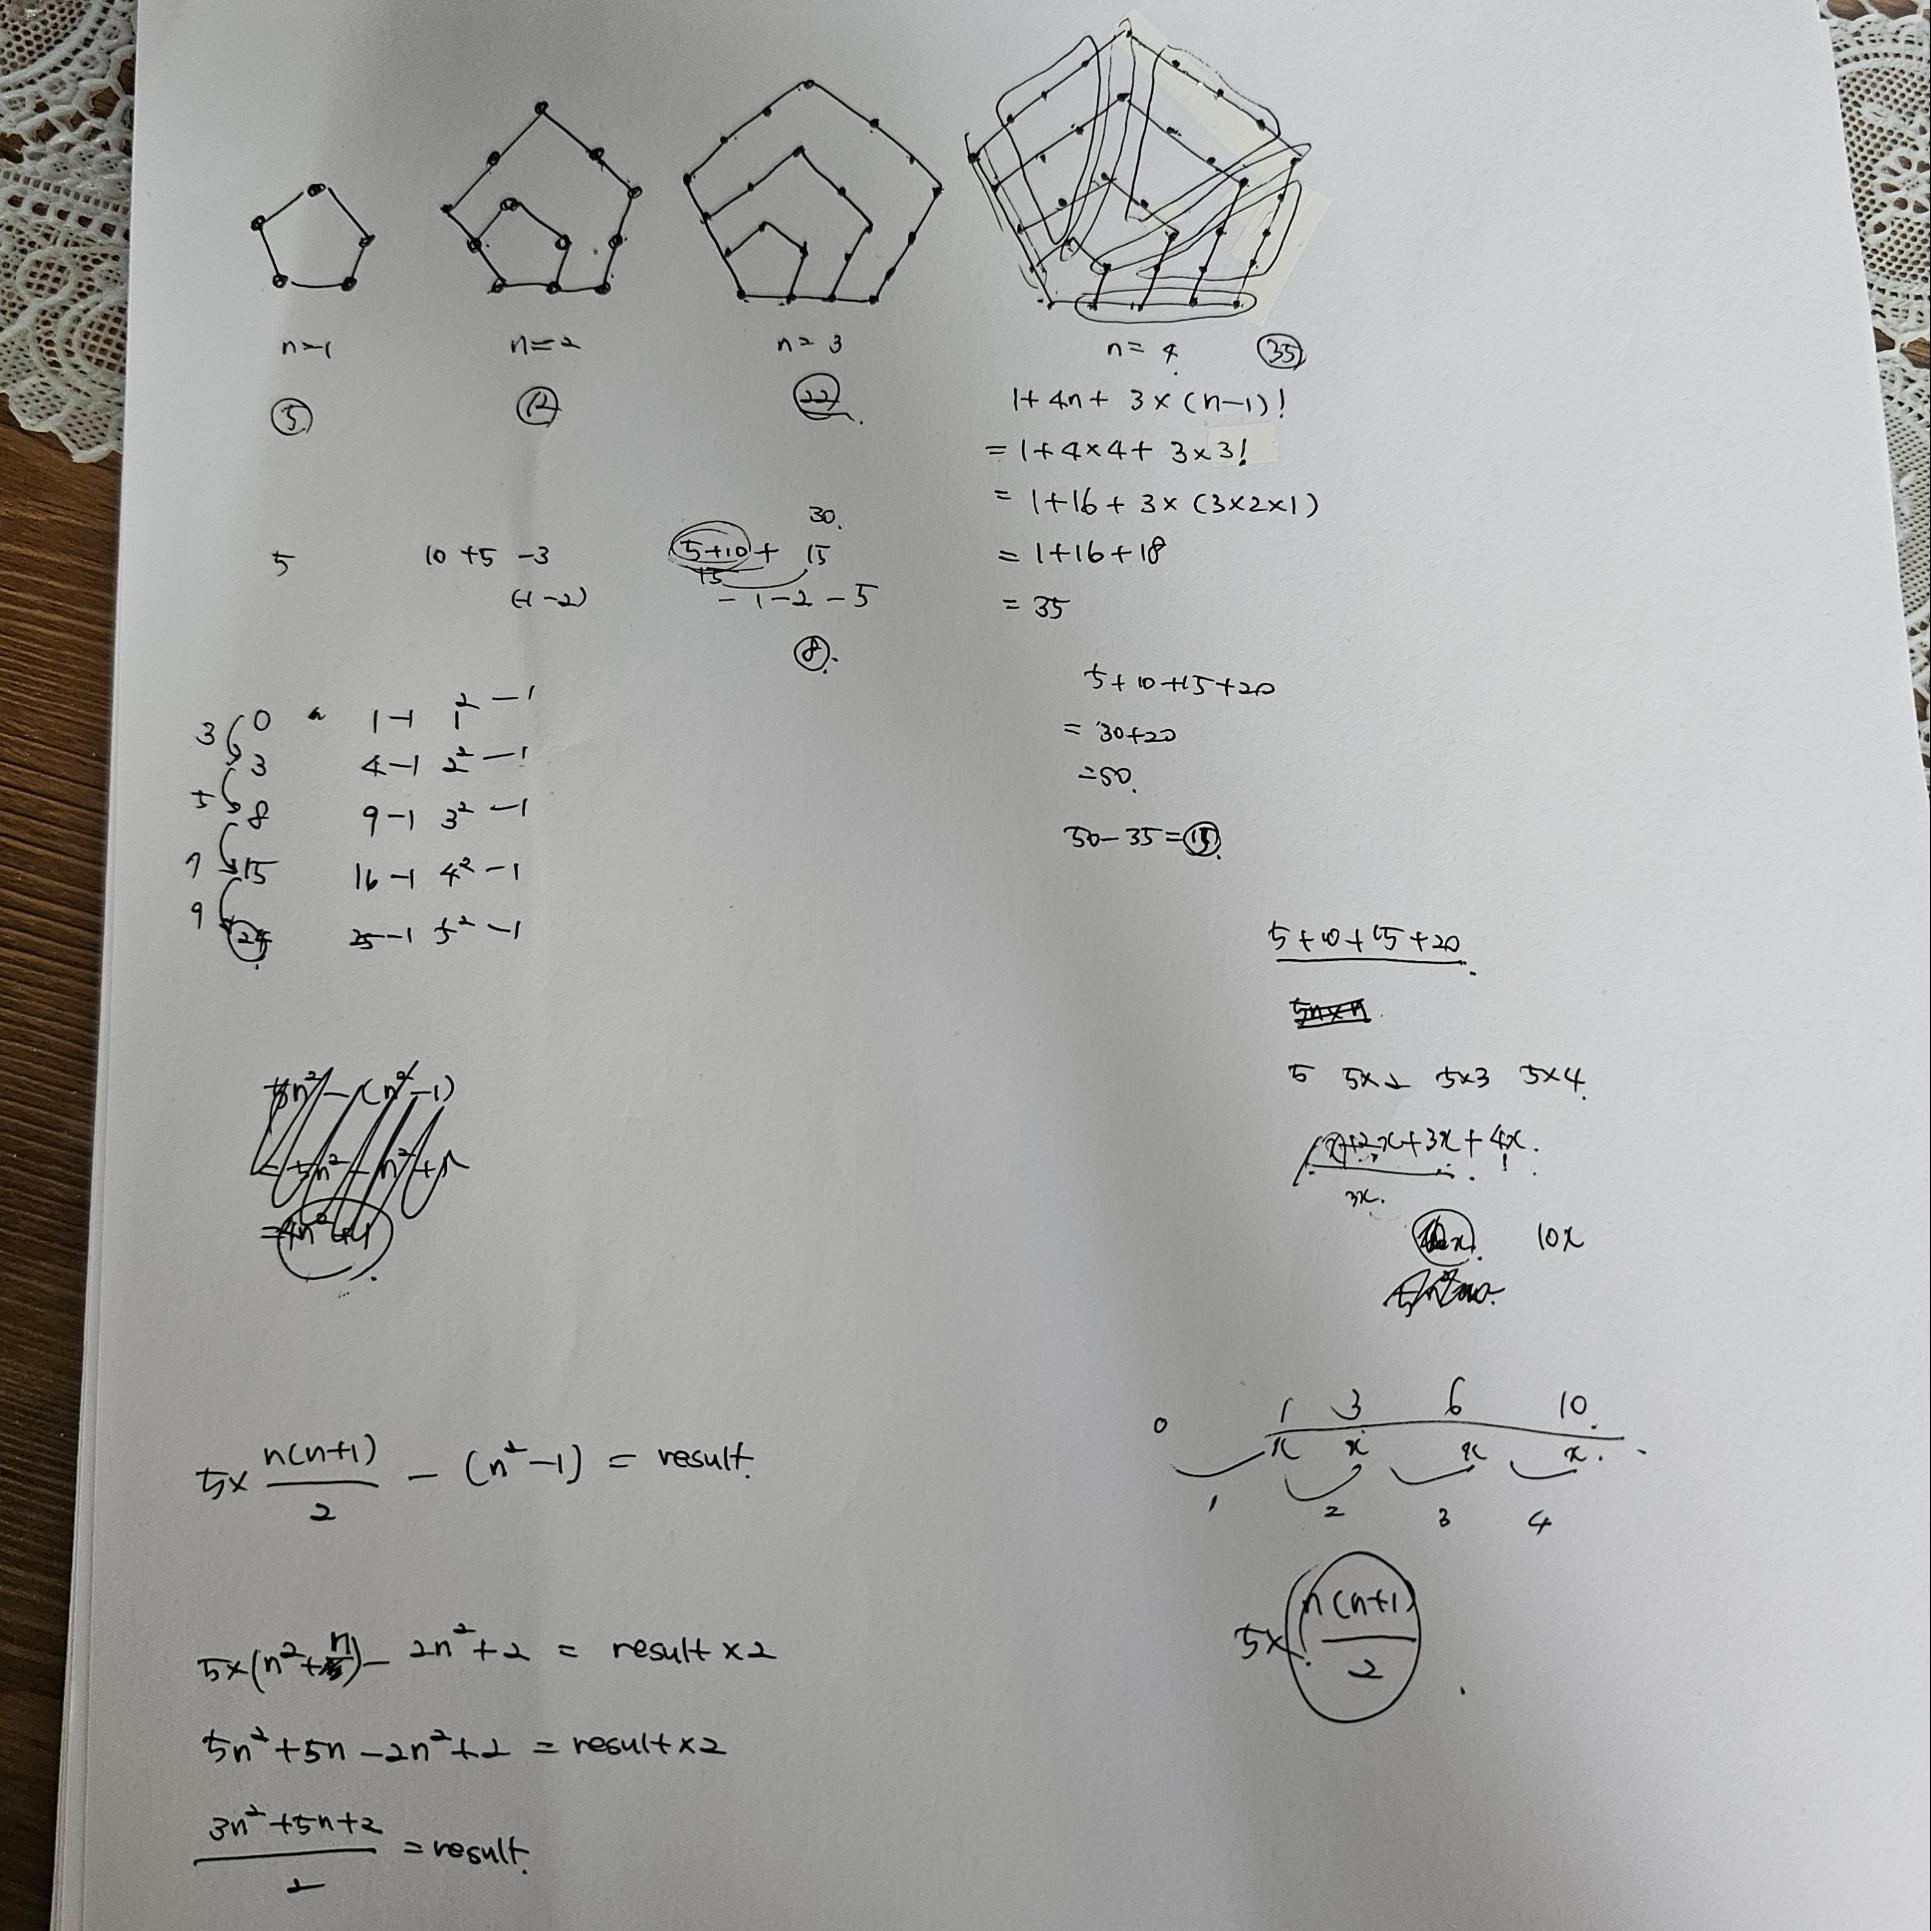 n=1
n=2
n=3
n=4
35
5
12
22
1+4n+3×(n-1)!
=1+4×4+3×3!
=1+16+3×(3×2×1)
=1+16+18
=35
5
10+5-3
(-1-2)
30.
5+10+15
15
-1-2-5
8.
5+10+15+20
=30+20
=50.
50-35=15.
3
0
1-1
1²-1
5
3
4-1
2²-1
7
8
9-1
3²-1
9
15
16-1
4²-1
24
25-1
5²-1
5+10+15+20
5n×n
5 5×2 5×3 5×4.
x+2x+3x+4x.
3x.
10x
5n²-(n²-1)
=5n²-n²+1
=4n²+1
0 1 3 6 10.
x x x x.
1 2 3 4
5× n(n+1)/2
5× n(n+1)/2 - (n²-1) = result.
5×(n²+n)-2n²+2 = result×2
5n²+5n-2n²+2 = result×2
3n²+5n+2/2 = result.